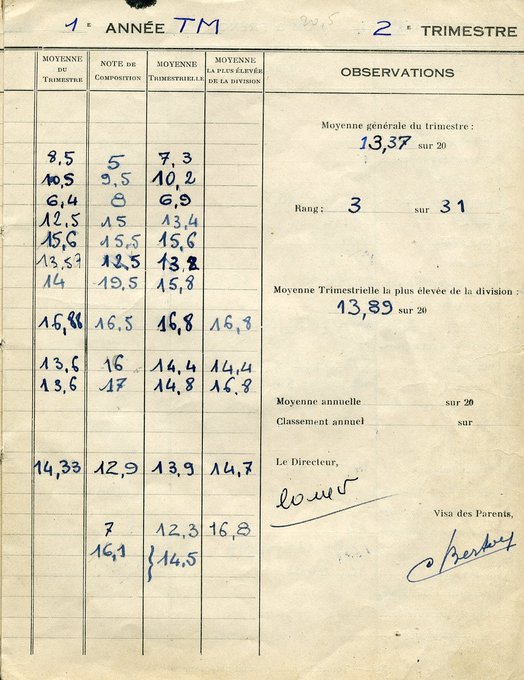 1e ANNÉE TM 20,5 2e TRIMESTRE
MOYENNE DU TRIMESTRE NOTE DE COMPOSITION MOYENNE TRIMESTRIELLE MOYENNE LA PLUS ÉLEVÉE DE LA DIVISION OBSERVATIONS
Moyenne générale du trimestre :
13,37 sur 20
8,5 5 7,3
10,5 9,5 10,2
6,4 8 6,9
Rang : 3 sur 31
12,5 15 13,4
15,6 15,5 15,6
13,57 12,5 13,2
14 19,5 15,8
Moyenne Trimestrielle la plus élevée de la division :
13,89 sur 20
16,88 16,5 16,8 16,8
13,6 16 14,4 14,4
13,6 17 14,8 16,8
Moyenne annuelle sur 20
Classement annuel sur
14,33 12,9 13,9 14,7
Le Directeur,
Visa des Parents,
7 12,3 16,8
16,1 } 14,5